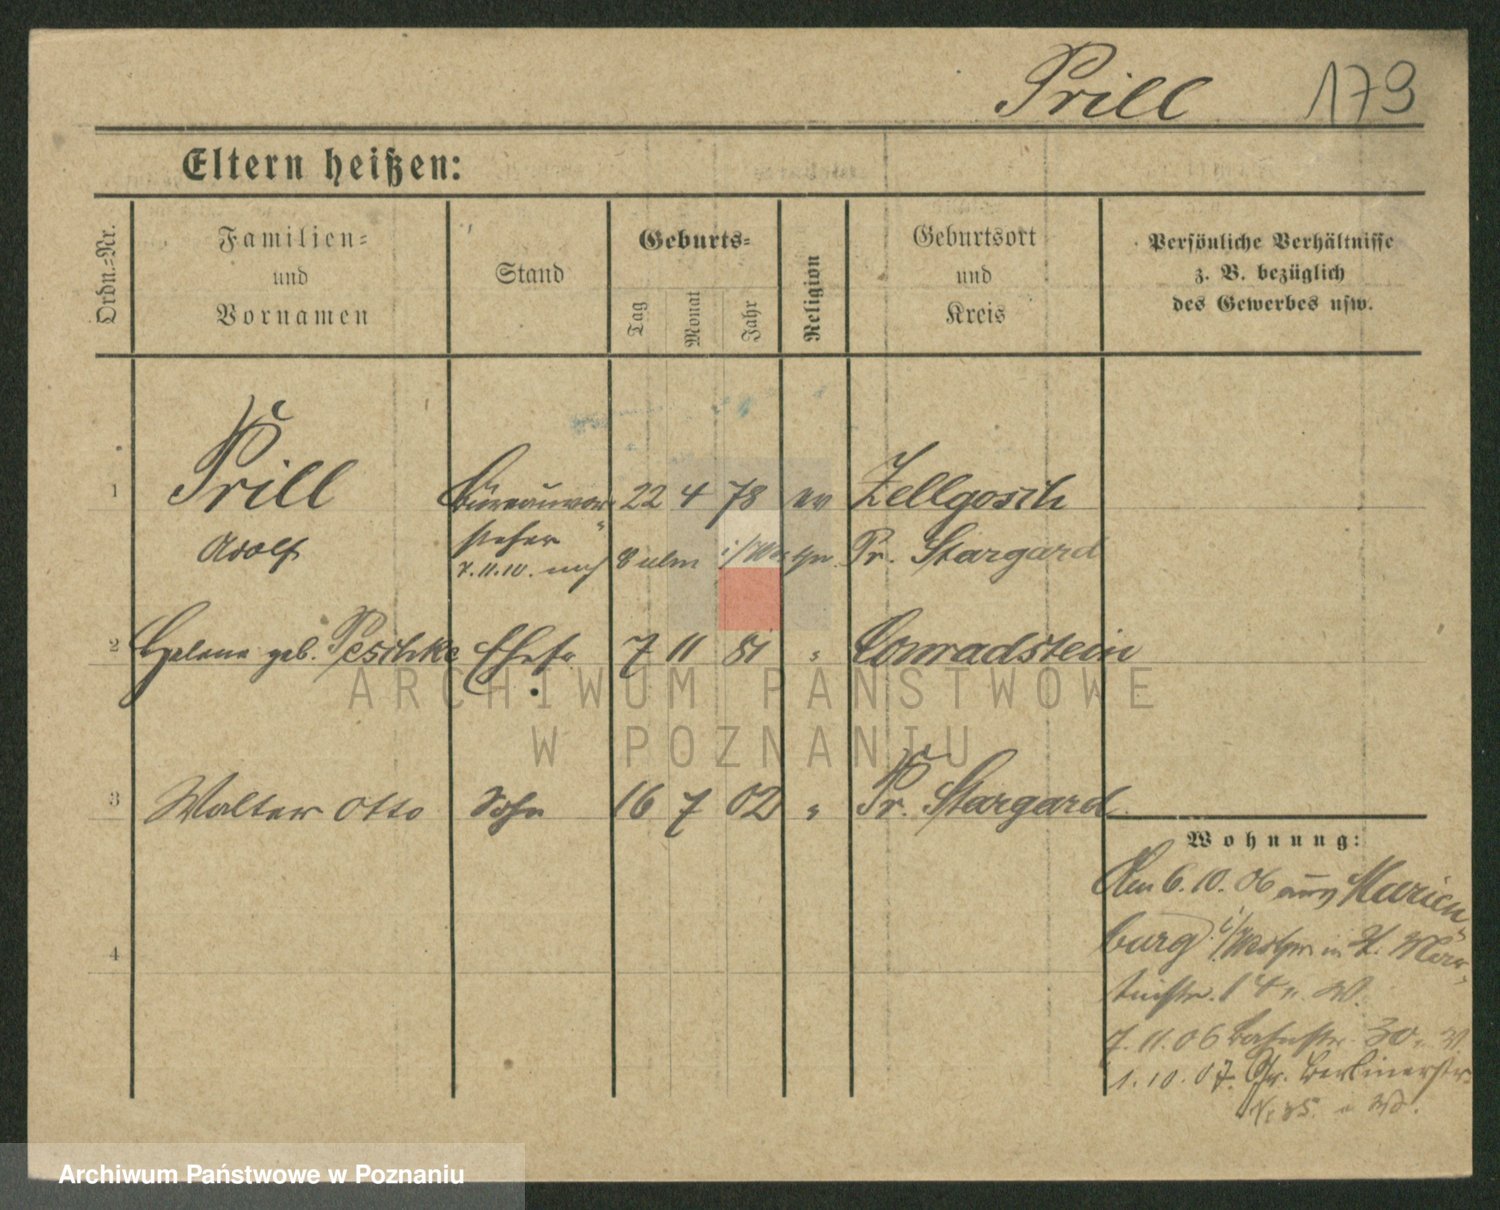 Prill 179
Eltern heißen:
Ordn.-Nr.
Familien-
und
Vornamen
Stand
Geburts-
Tag
Monat
Jahr
Religion
Geburtsort
und
Kreis
Persönliche Verhältnisse
z. B. bezüglich
des Gewerbes usw.
1 Prill Bureauvor- 22 4 78 ev Zellgosch
Adolf steher Pr. Stargard
7.11.10. nach i/Wstpr.
2 Helene geb. Peschke Ehefr. 7 11 81 " Conradstein
3 Walter Otto Sohn 16 7 02 " Pr. Stargard
4
Wohnung:
Am 6.10.06 aus Marien-
burg i/Wstpr. in
7.11.06 Bahnstr. 30
1.10.07. Gr. Berlinerstr.
Nr. 85.
ARCHIWUM PAŃSTWOWE
W POZNANIU
Archiwum Państwowe w Poznaniu